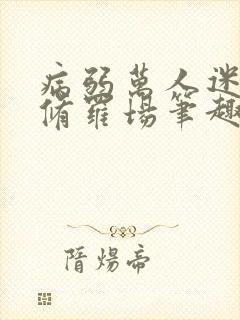 病弱萬人迷
脩羅場筆趣
隋煬帝